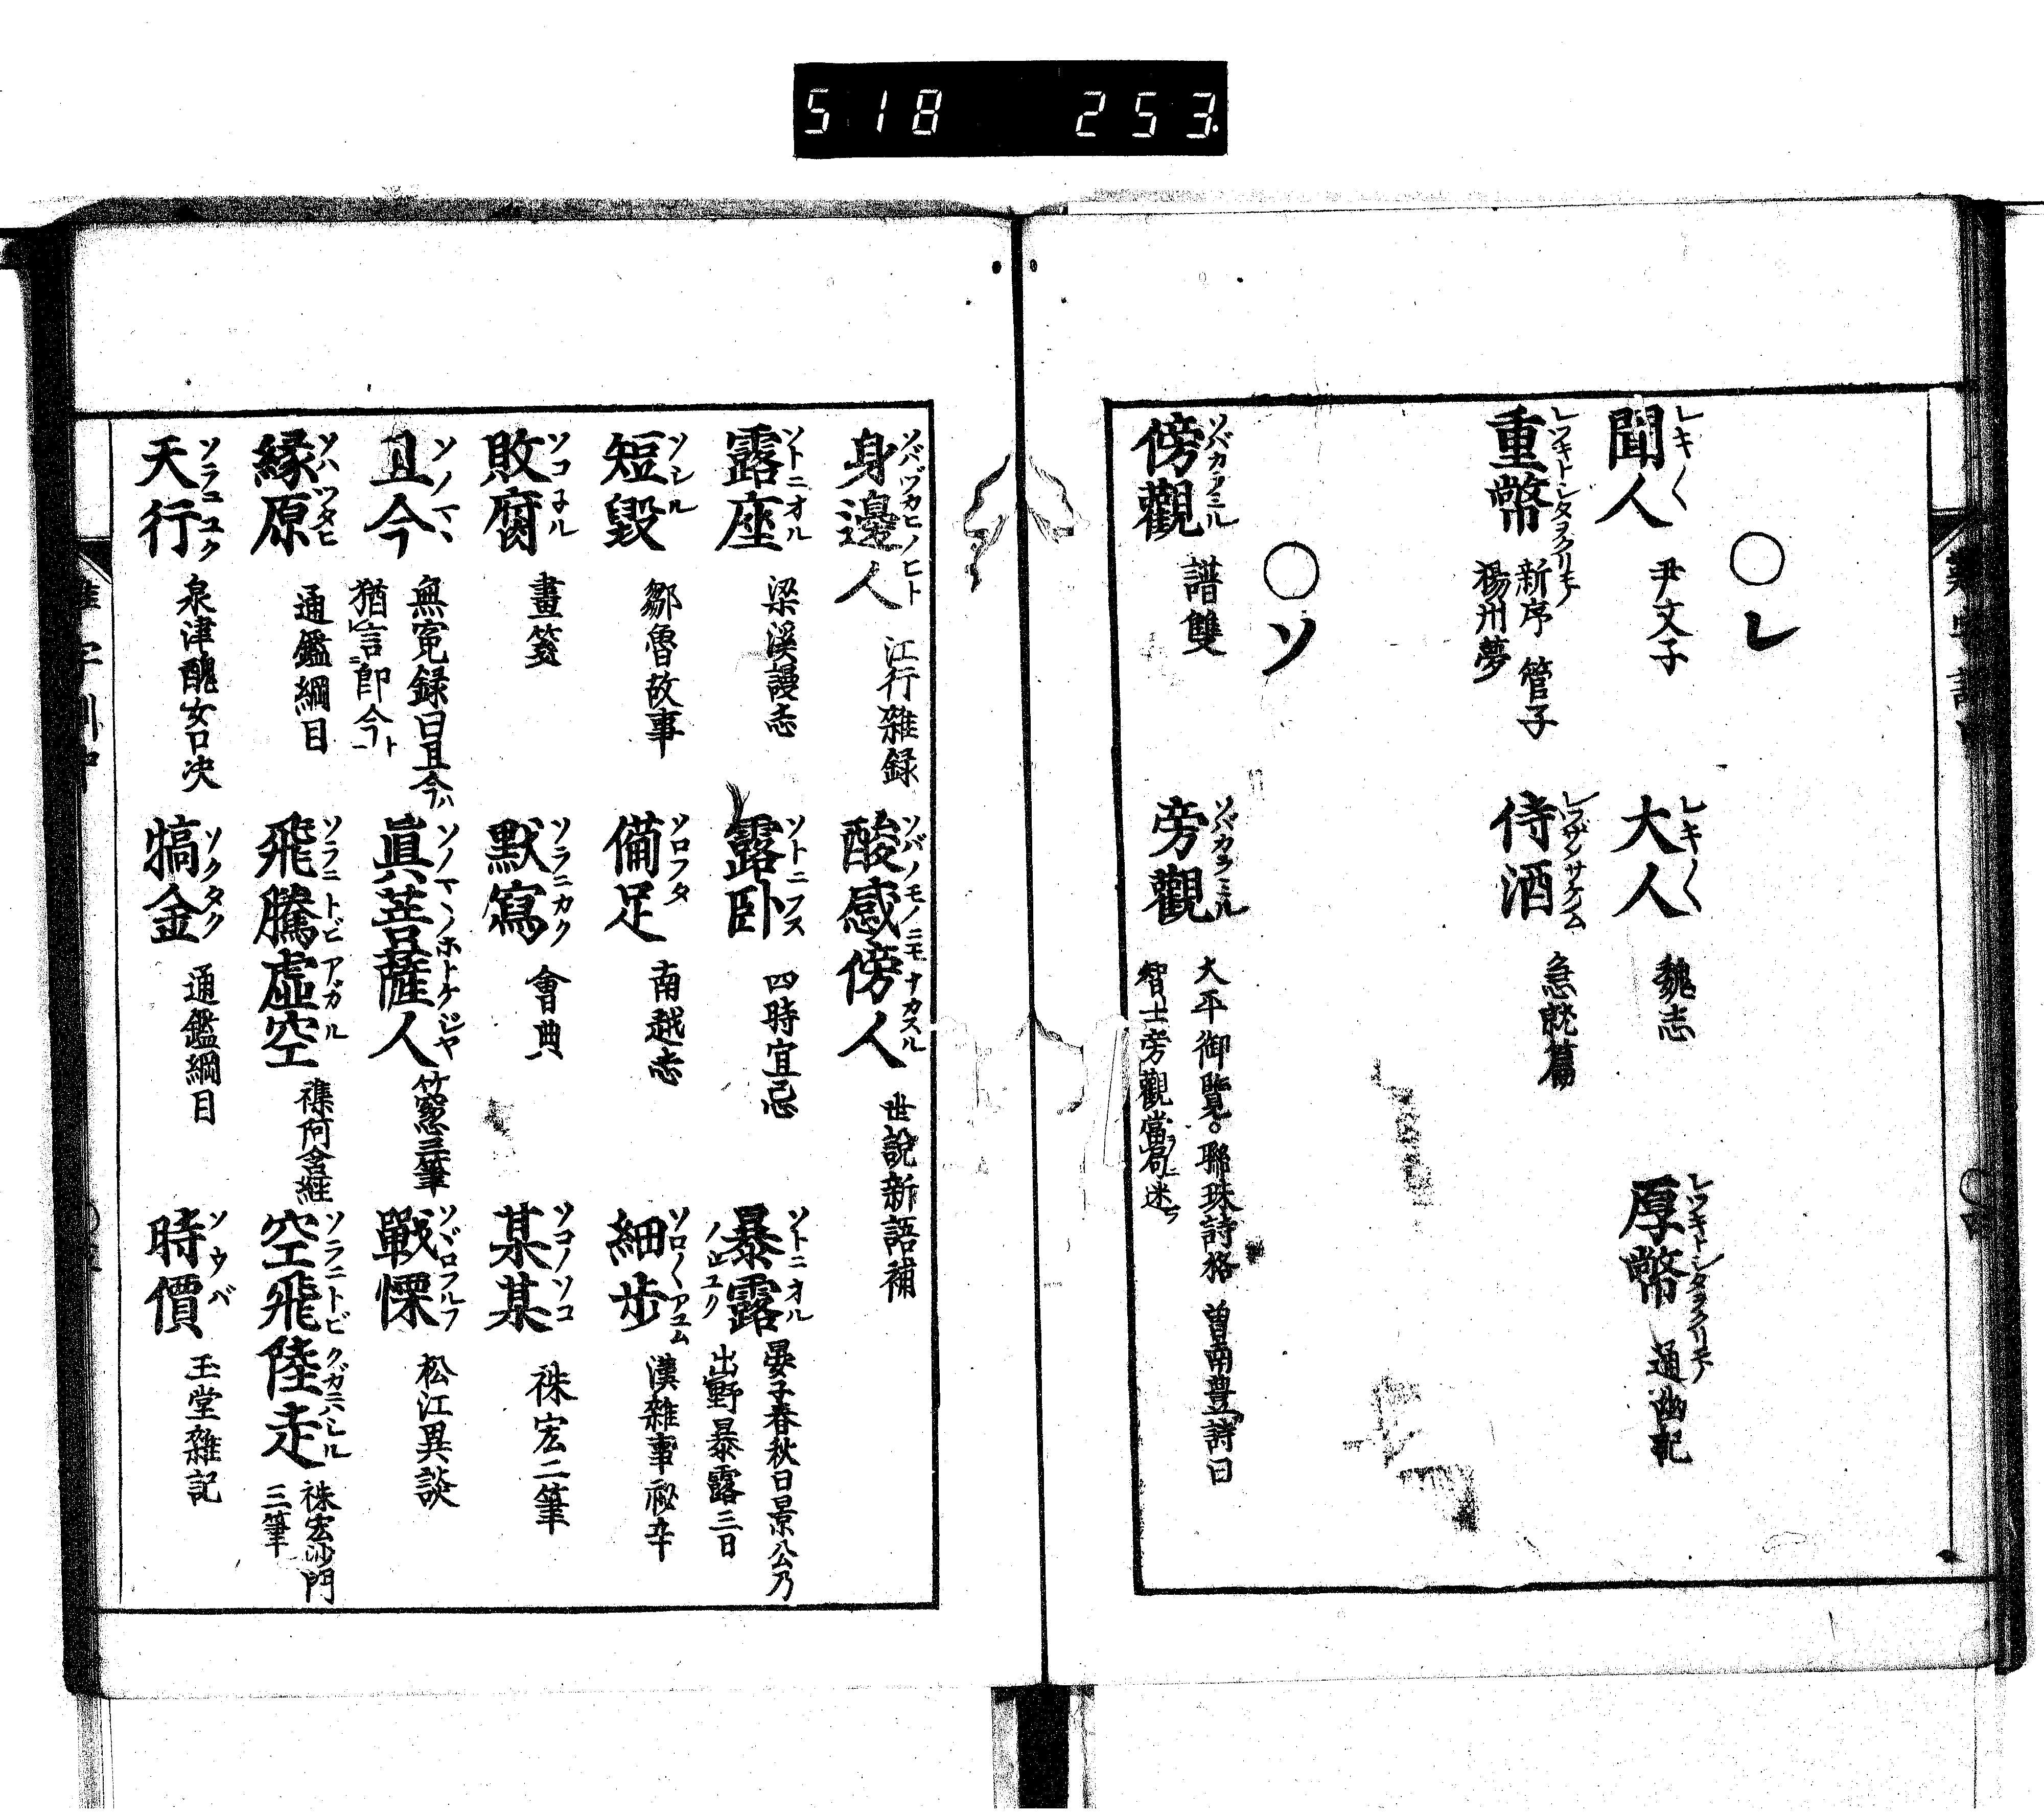 518 253.
○レ
聞人 レキ〳〵 尹文子
大人 レキ〳〵 魏志
厚幣 レツキトシタヲクリモノ 通幽記
重幣 レツキトシタヲクリモノ 新序 管子 楊州夢
侍酒 急就篇
○ソ
傍觀 ソバカラミル 譜雙
旁觀 ソバカラミル 大平御覽。聯珠詩格 曽南豊詩曰智士旁觀當局迷
身邊人 ソバヅカヒノヒト 江行雜録
酸感傍人 ソバノモノニモナカスル 世說新語補
露座 ソトニオル 梁溪謾志
露臥 ソトニフス 四時宜忌
暴露 ソトニオル 晏子春秋曰景公乃出野暴露三日
短毀 ソシル 鄒魯故事
備足 ソロフタ 南越志
細步 ソロ〳〵アユム 漢雜事祕辛
敗腐 ソコネル 畫箋
默寫 ソラニカク 會典
某某 ソコノソコ 祩宏二筆
且今 ソノマヽ 無寃録曰且今ハ猶言即今ト
眞菩薩人 ソノマヽノホトケジヤ 竹窓三筆
戰慄 ソヾロフルフ 松江異談
緣原 ソハヅタヒ 通鑑綱目
飛騰虛空 ソラニトビアガル 襍阿含経
空飛陸走 ソラニトビクガニハシル 祩宏沙門三筆
天行 ソラユユク 泉津醜女口決
犒金 ソクタク 通鑑綱目
時價 ソウバ 玉堂雜記